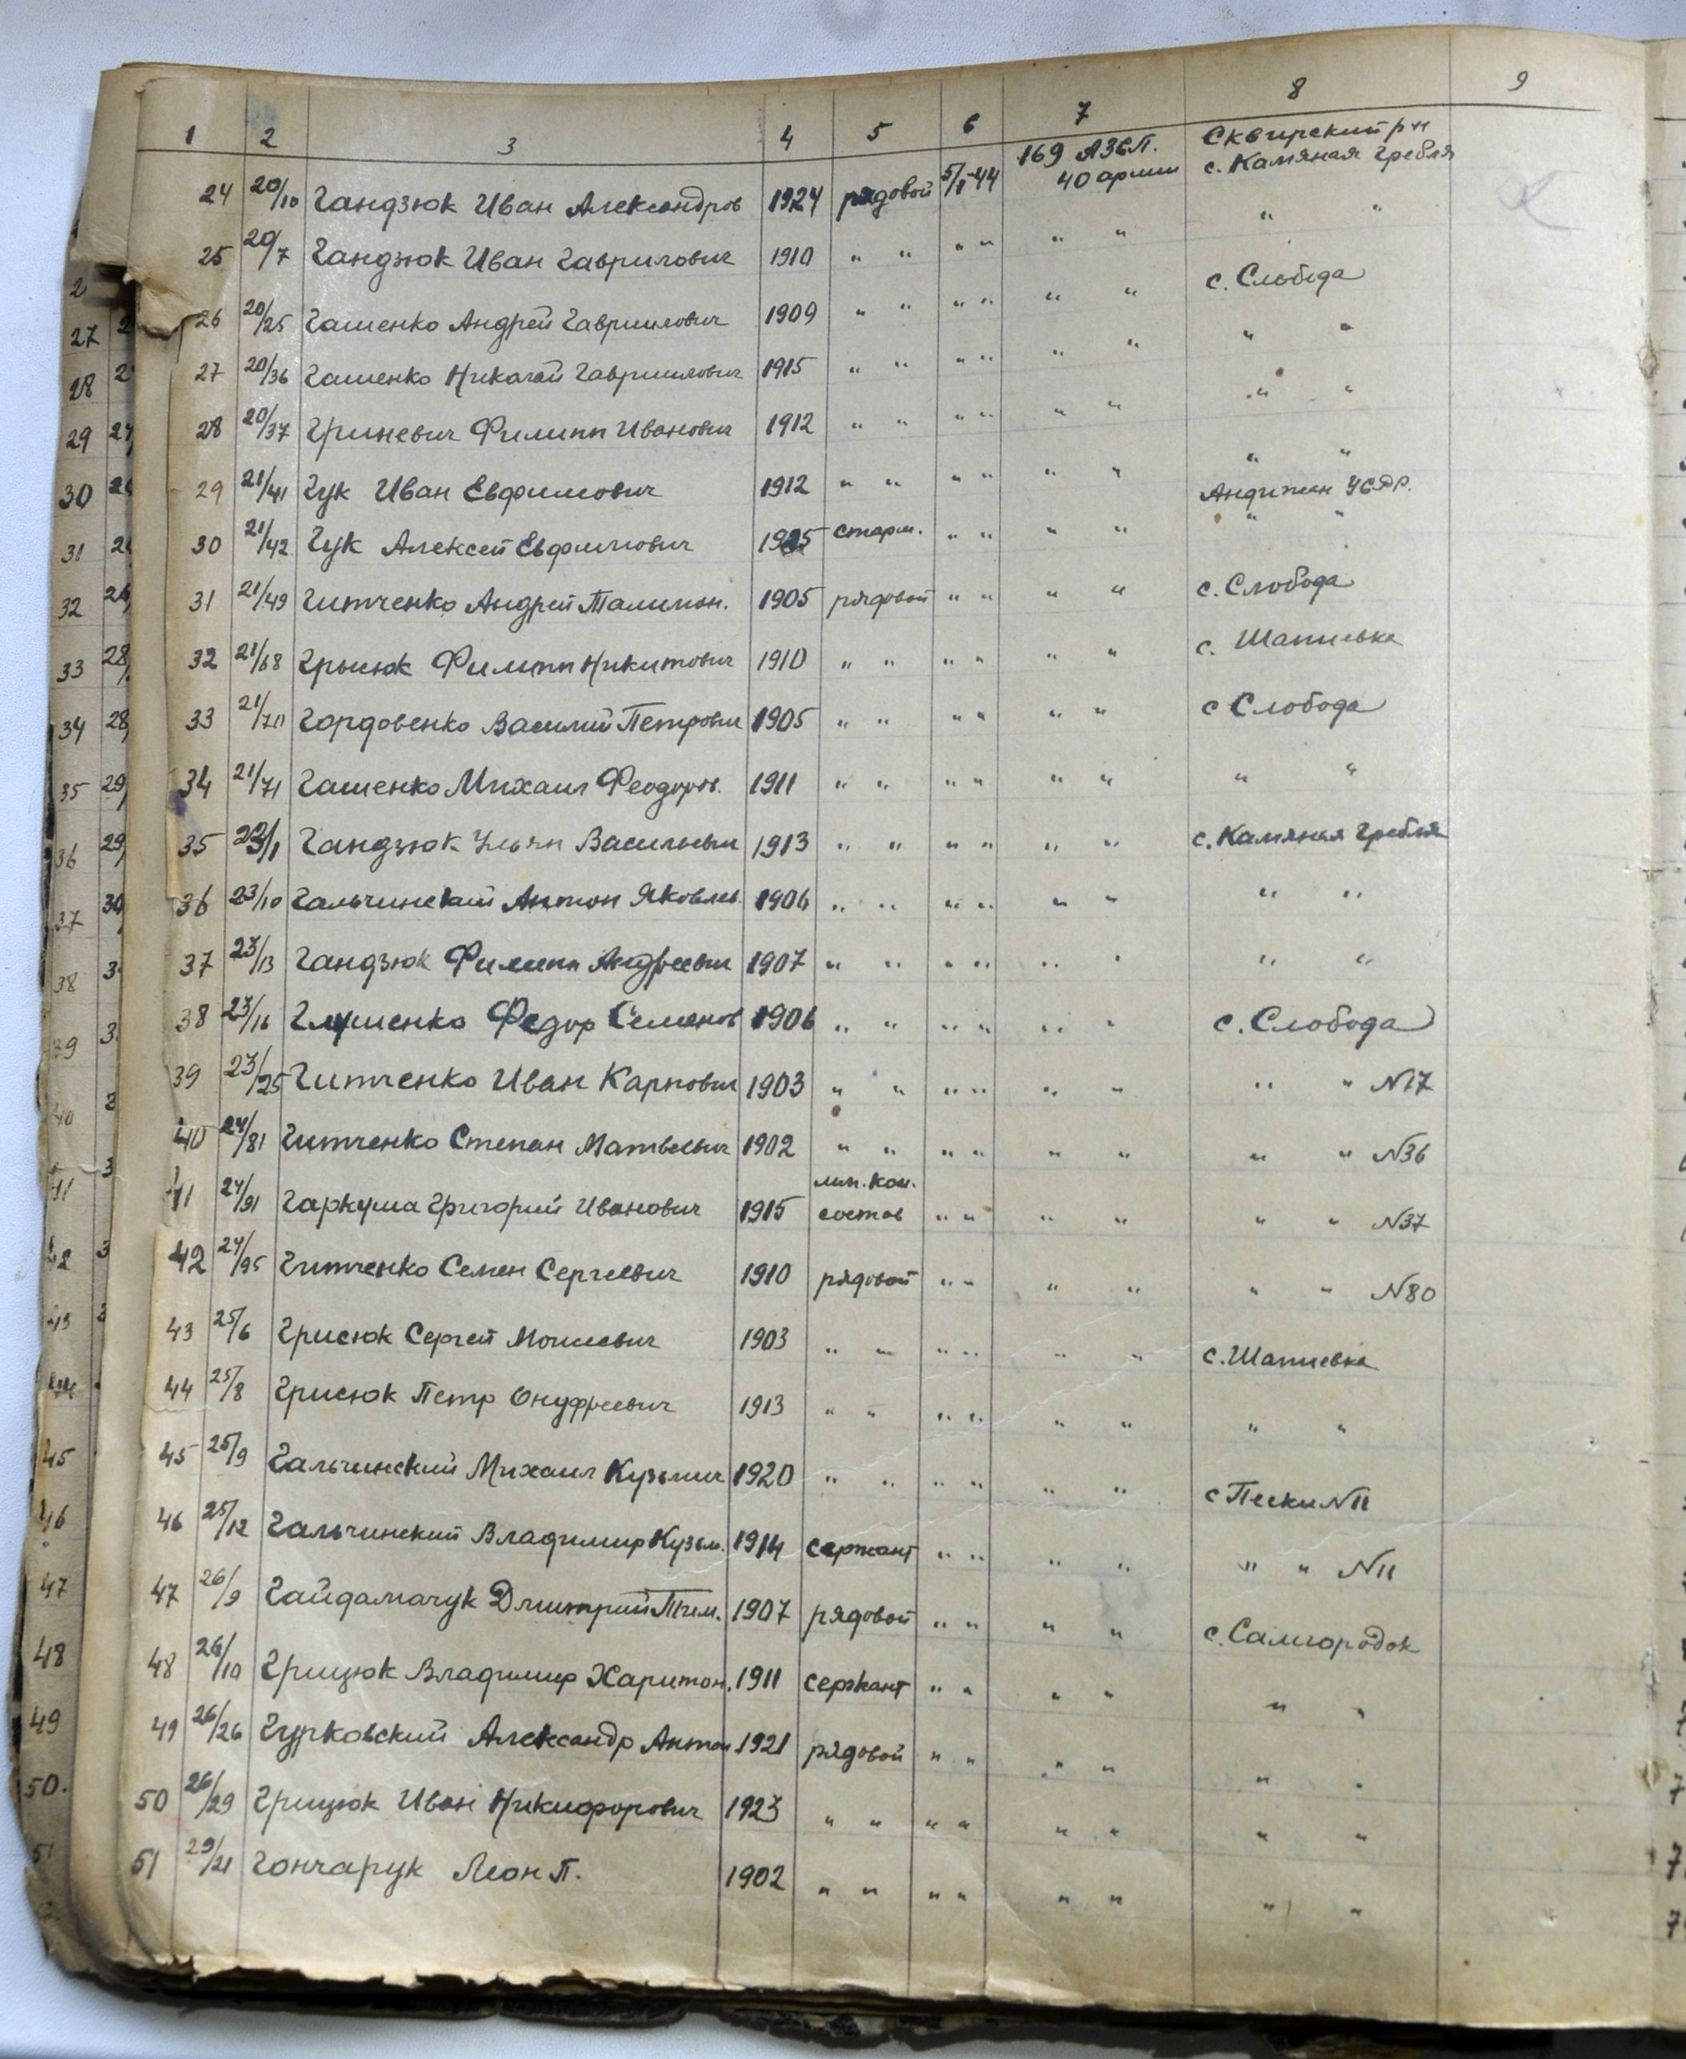 1 2 3 4 5 6 7 8 9
24 20/10 Гандзюк Иван Александров 1924 рядовой 5/I-44 169 АЗСП. 40 армии Сквирский р-н с. Камяная Гребля
25 20/7 Гандзюк Иван Гаврилович 1910 " " " " " " " "
26 20/25 Гашенко Андрей Гаврилович 1909 " " " " " " с. Слобода
27 20/36 Гашенко Николай Гаврилович 1915 " " " " " " " "
28 20/37 Гриневич Филипп Иванович 1912 " " " " " " " "
29 21/41 Гук Иван Евфимович 1912 " " " " " " " " Андижен УССР.
30 21/42 Гук Алексей Евфимович 1925 старш. " " " " " "
31 21/49 Гитченко Андрей Талимон. 1905 рядовой " " " " с. Слобода
32 21/68 Грысюк Филипп Никитович 1910 " " " " " " с. Шапиевка
33 21/70 Гордовенко Василий Петрович 1905 " " " " " " с Слобода
34 21/71 Гашенко Михаил Феодоров. 1911 " " " " " " " "
35 23/1 Гандзюк Ульян Васильевич 1913 " " " " " " с. Камяная Гребля
36 23/10 Гальчинский Антон Яковлев. 1906 " " " " " " " "
37 23/13 Гандзюк Филипп Андреевич 1907 " " " " " " " "
38 23/16 Глушенко Федор Семенов 1906 " " " " " " с. Слобода
39 23/25 Гитченко Иван Карпович 1903 " " " " " " " " N17
40 24/81 Гитченко Степан Матвеевич 1902 " " " " " " " " N36
41 24/91 Гаркуша Григорий Иванович 1915 мл. ком. состав " " " " " " N37
42 24/95 Гитченко Семен Сергеевич 1910 рядовой " " " " " " N80
43 25/6 Грисюк Сергей Мошсевич 1903 " " " " " " с. Шапиевка
44 25/8 Грисюк Петр Онуфреевич 1913 " " " " " " " "
45 25/9 Гальчинский Михаил Кузьмич 1920 " " " " " " с Пески N11
46 25/12 Гальчинский Владимир Кузьм. 1914 сержант " " " " " " N11
47 26/9 Гайдамачук Дмитрий Тим. 1907 рядовой " " " " с. Самгородок
48 26/10 Грицюк Владимир Харитон. 1911 сержант " " " " " "
49 26/26 Гурковский Александр Антон 1921 рядовой " " " " " "
50 26/29 Грицюк Иван Никифорович 1923 " " " " " " " "
51 29/21 Гончарук Леон П. 1902 " " " " " " " "